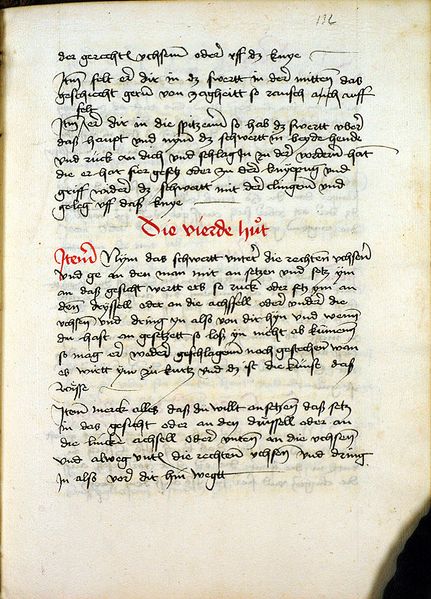 132
der gerecht uchsenn oder uff dz knye
Item felt er dir in dz swertt in der mitten das
geschiecht gern von zagheitt so rausch auch auff
felt
Item er dir in die spitz so hab dz swertt uber
das haupt und nym dz schwertt in beyde hende
und ruck an dich und schlag In zu der vordern hat
die er hat fier gesetz oder zu der knyepug und
griff wider dz schwertt mit der clingen und
geleg uff das knye
Die vierde hůt
Item Nym das schwertt unter die rechten uchsen
und ge an den man mit an setzen und setz ym
an das gesicht wertt ets so ruck oder setz ym an
den dryssell oder an die achssell oder under die
uchsen und dring yn also von dir hyn und wenn
du hast an gesetzett so los yn nicht ab kumen
so mag er weder geschlagenn noch gestechen wan
es wirtt ym zu kurtz und dz ist die kunst das
wisse
Item merck alles das du willt ansetzen das setz
in das gesicht oder an den drussell oder an
die linck achsell oder unten an die uchsen
und alweg unter die rechten uchsen und dring
In also vor dir hin wegtt